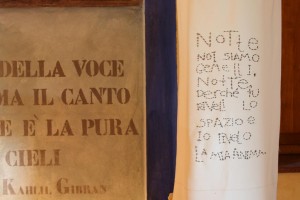 DELLA VOCE
MA IL CANTO
E È LA PURA
CIELI
KAHLIL GIBRAN
NOTTE
NOI SIAMO
GEMELLI,
NOTTE,
PERCHÉ TU
RIVELI LO
SPAZIO E
IO RIVELO
LA MIA ANIMA